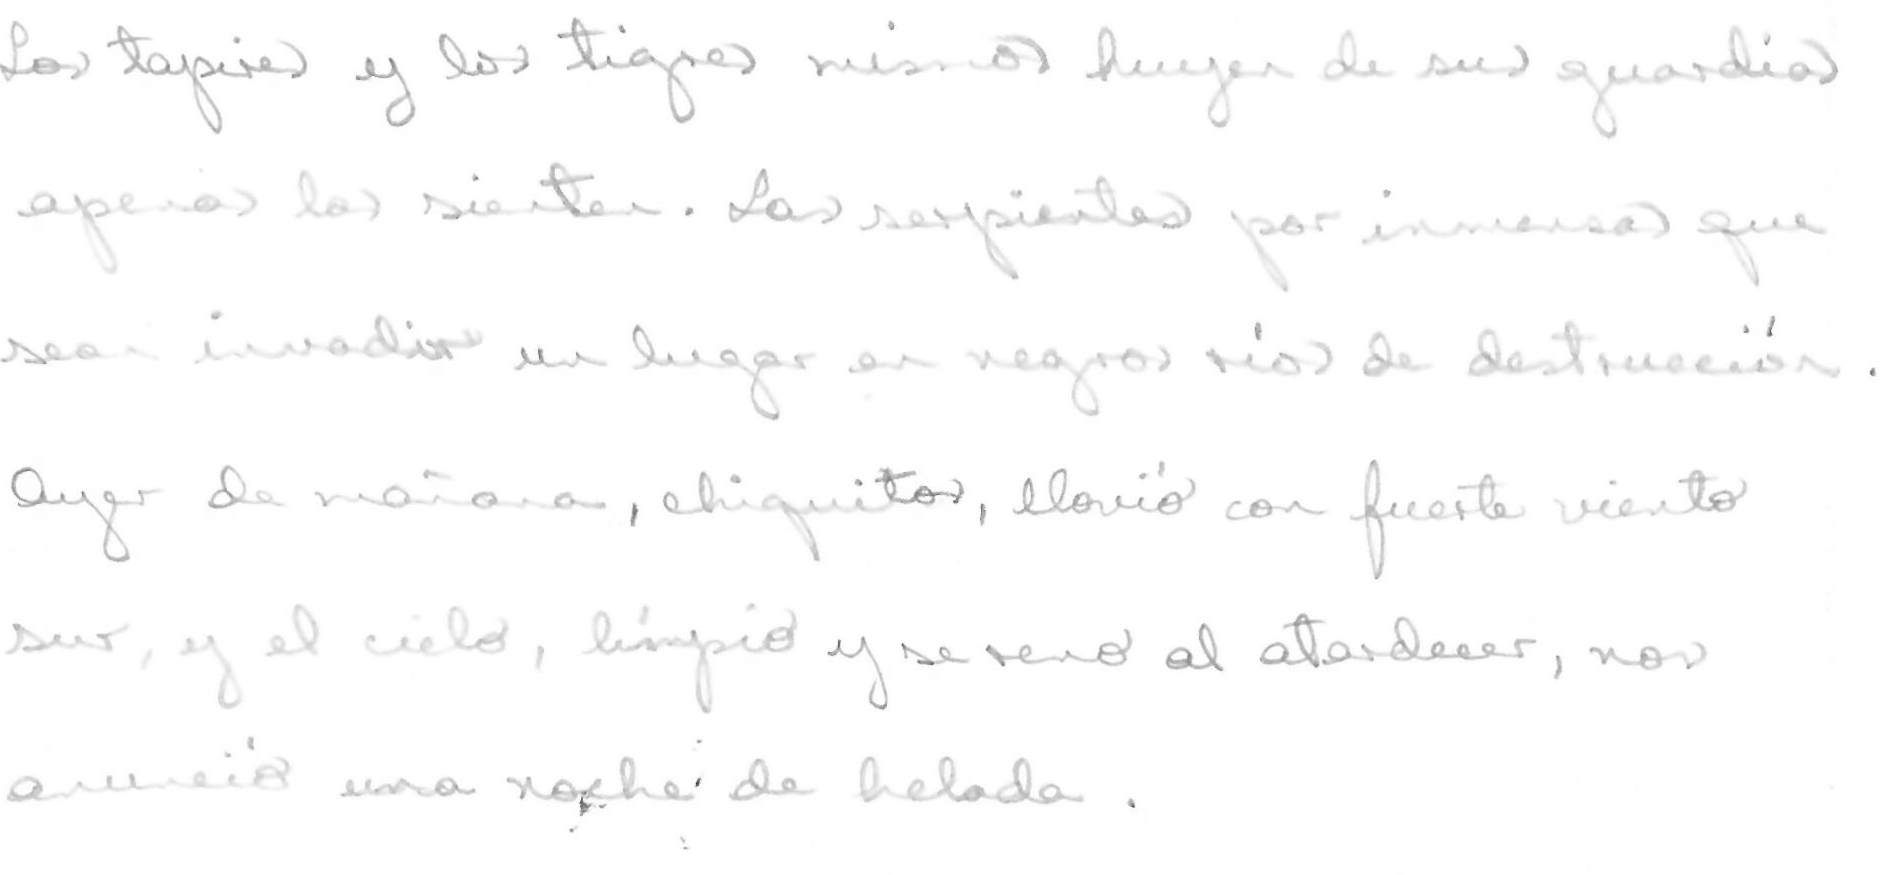 Los tapires y los tigres mismos huyen de sus guardias
apenas las sienten. Las serpientes por inmensas que
sean invadir un lugar en negros ríos de destrucción.
Ayer de mañana, chiquitos, llovió con fuerte viento
sur, y el cielo, límpio y sereno al atardecer, nos
anunció una noche de helada.